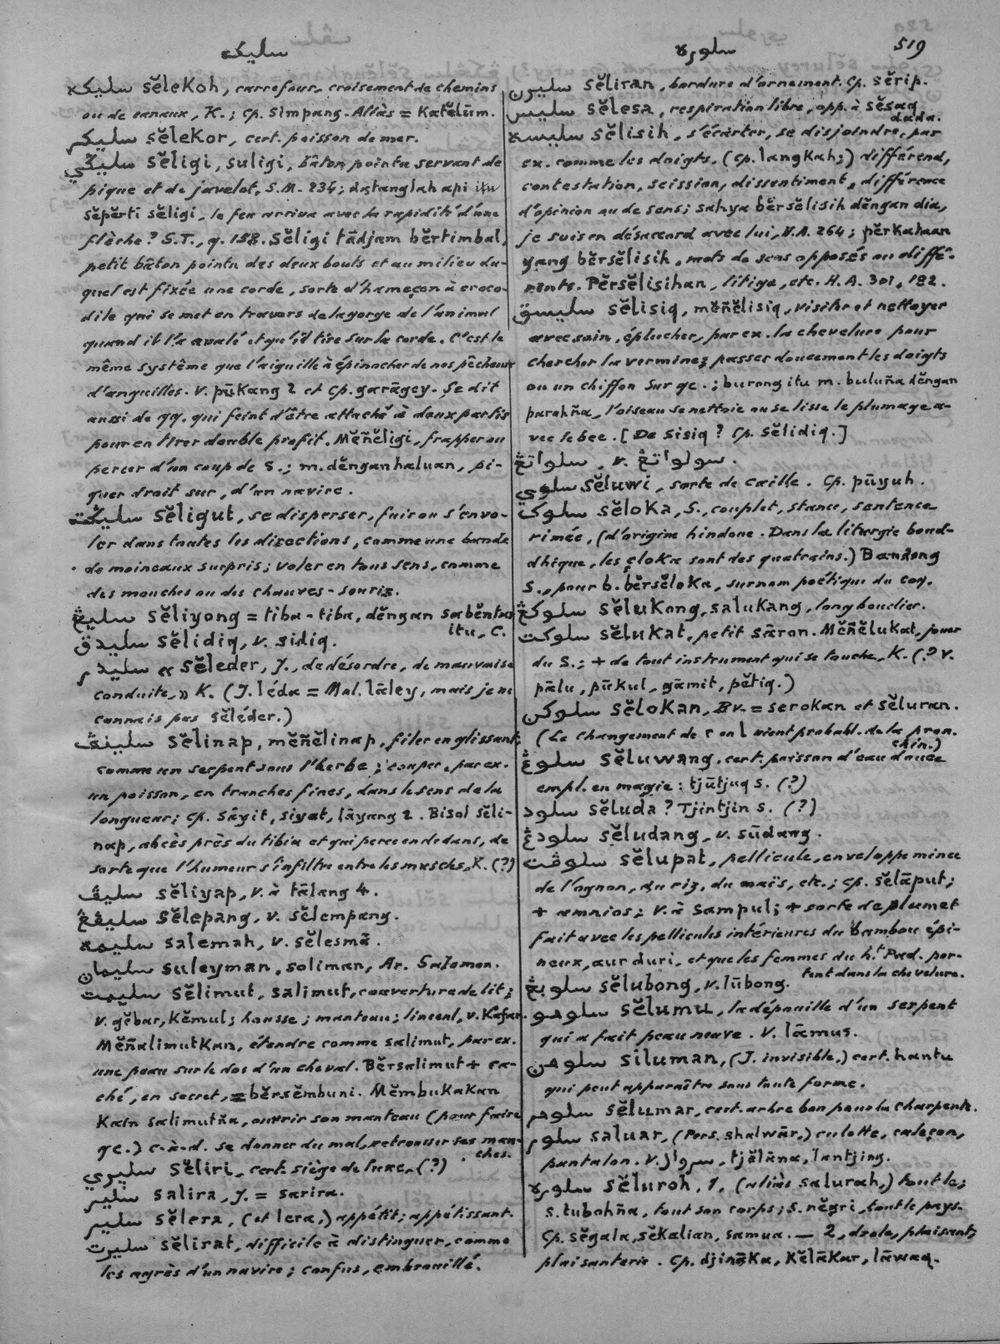 سليكه
سلوره
519
سليكه sĕlekoh, carrefour, croisement de chemins
ou de canaux, K.; cp. simpang. Aliàs = Katĕlūm.
سليكر sĕlekor, cert. poisson de mer.
سليڬي sĕligi, suligi, bâton pointu servant de
pique et de javelot, S.M. 234; datanglah api itu
sĕpĕrti sĕligi, le feu arriva avec la rapidité d'une
flèche? S.T., q. 158. Sĕligi tādjam bĕrtimbal,
petit bâton pointu des deux bouts et au milieu du-
quel est fixée une corde, sorte d'hameçon à croco-
dile qui se met en travers de la gorge de l'animal
quand il l'a avalé et qu'il tire sur la corde. C'est le
même système que l'aiguille à épinocher de nos pêcheurs
d'anguilles. V. pūkang 2 et cp. garāgey. Se dit
aussi de qq. qui feint d'être attaché à deux partis
pour en tirer double profit. Mĕñĕligi, frapper ou
percer d'un coup de S.; m. dĕngan haluan, pi-
quer droit sur, d'un navire.
سليڬت sĕligut, se disperser, fuir ou s'envo-
ler dans toutes les directions, comme une bande
de moineaux surpris; voler en tous sens, comme
des mouches ou des chauves-souris.
سليڠ sĕliyong = tiba-tiba, dĕngan sabĕntar
itu, C.
سليدق sĕlidiq, v. sidiq.
سليدر « sĕleder, J., de désordre, de mauvaise
conduite, » K. (J. léda = Mal. lāley, mais je ne
connais pas sĕléder.)
سلينڤ sĕlinap, mĕñĕlinap, filer en glissant
comme un serpent sous l'herbe; couper, par ex.
un poisson, en tranches fines, dans le sens de la
longueur; cp. sāyit, siyat, lāyang 2. Bisol sĕli-
nap, abcès près du tibia et qui perce en dedans, de
sorte que l'humeur s'infiltre entre les muscles, K. (?)
سليڤ sĕliyap, v. à tālang 4.
سليڤڠ sĕlepang, v. sĕlempang.
سليمه salemah, v. sĕlesmā.
سليمان suleyman, soliman, Ar. Salomon.
سليمت sĕlimut, salimut, couverture de lit;
v. gĕbar, kĕmul; housse; manteau; linceul, v. Kafan.
Mĕñalimutkan, étendre comme salimut, par ex.
une peau sur le dos d'un cheval. Bĕrsalimut + ca-
ché, en secret, = bĕrsĕmbuni. Mĕmbukakan
Kaīn salimutña, ouvrir son manteau (pour faire
qc.) c.-à-d. se donner du mal, retrousser ses man-
ches.
سليري sĕliri, cert. siège de luxe. (?)
سلير salira, J. = sarira.
سلير sĕlera, (et lera,) appétit; appétissant.
سليرت sĕlirat, difficile à distinguer, comme
les agrès d'un navire; confus, embrouillé.
سليرن sĕliran, bordure d'ornement. Cp. sĕrip.
سليس sĕlesa, respiration libre, opp. à sĕsaq
dada.
سليسه sĕlisih, s'écarter, se disjoindre, par
ex. comme les doigts. (Cp. langkah;) différend,
contestation, scission, dissentiment, différence
d'opinion ou de sens; sahya bĕrsĕlisih dĕngan dia,
je suis en désaccord avec lui, H.A. 264; pĕrkataan
yang bĕrsĕlisih, mots de sens opposés ou diffé-
rents. Pĕrsĕlisihan, litige, etc. H.A. 301, 192.
سليسق sĕlisiq, mĕñĕlisiq, visiter et nettoyer
avec soin, éplucher, par ex. la chevelure pour
chercher la vermine; passer doucement les doigts
ou un chiffon sur qc.; burong itu m. buluña dĕngan
paruhña, l'oiseau se nettoie ou se lisse le plumage a-
vec le bec. [De sisiq? Cp. sĕlidiq.]
سلواتڠ, v. سولواتڠ.
سلوي sĕluwi, sorte de caille. Cp. pūyuh.
سلوك sĕloka, S., couplet, stance, sentence
rimée, (d'origine hindoue. Dans la liturgie boud-
dhique, les çloka sont des quatrains.) Bandong
S., pour b. bĕrsĕloka, surnom poétique du coq.
سلوكڠ sĕlukong, salukang, long bouclier.
سلوكت sĕlukat, petit sāron. Mĕñĕlukat, jouer
du S.; + de tout instrument qui se touche, K. (? V.
pālu, pūkul, gāmit, pĕtiq.)
سلوكن sĕlokan, Bv. = serokan et sĕluran.
(Le changement de r en l vient probabl. de la pron.
chin.)
سلوڠ sĕluwang, cert. poisson d'eau douce
empl. en magie: tjūtjuq s. (?)
سلود sĕluda? Tjintjin s. (?)
سلودڠ sĕludang, v. sūdang.
سلوڤت sĕlupat, pellicule, enveloppe mince
de l'ognon, du riz, du maïs, etc.; cp. sĕlāput;
+ amnios; v. à sampul; + sorte de plumet
fait avec les pellicules intérieures du bambou épi-
neux, aur duri, et que les femmes du ht Pad. por-
tent dans la chevelure.
سلوبڠ sĕlubong, v. lūbong.
سلومو sĕlumu, la dépouille d'un serpent
qui a fait peau neuve. V. lāmus.
سلومن siluman, (J. invisible,) cert. hantu
qui peut apparaître sous toute forme.
سلومر sĕlumar, cert. arbre bon pour la charpente.
سلور saluar, (Pers. shalwār,) culotte, caleçon,
pantalon. V. سروال, tjĕlāna, lantjing.
سلوره sĕluroh, 1, (aliàs salurah,) tout le;
s. tubohña, tout son corps; s. nĕgri, tout le pays.
Cp. sĕgala, sĕkalian, samua. — 2, drole, plaisant;
plaisanterie. Cp. djināka, Kĕlākar, lāwaq.